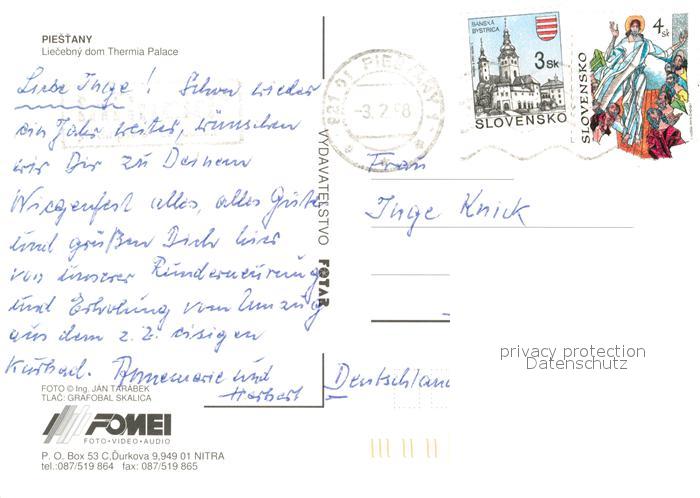 PIEŠŤANY
Liečebný dom Thermia Palace
Liebe Inge! Schon wieder
ein Jahr weiter, wünschen
wir Dir zu Deinem
Wiegenfest alles, alles Gute
und grüßen Dich hier
von unserer Runderneuerung
und Erholung vom Umzug
aus dem z. Z. eisigen
Kurbad. Annemarie und
Herbert
FOTO © Ing. JÁN TARÁBEK
TLAČ: GRAFOBAL SKALICA
FOMEI
FOTO·VIDEO·AUDIO
P. O. Box 53 C,Ďurkova 9,949 01 NITRA
tel.:087/519 864 fax: 087/519 865
VYDAVATEĽSTVO FOTAR
PIEŠŤANY 1
BANSKÁ
BYSTRICA
3 Sk
SLOVENSKO
4 Sk
SLOVENSKO
Frau
Inge Knick
Deutschland
privacy protection
Datenschutz